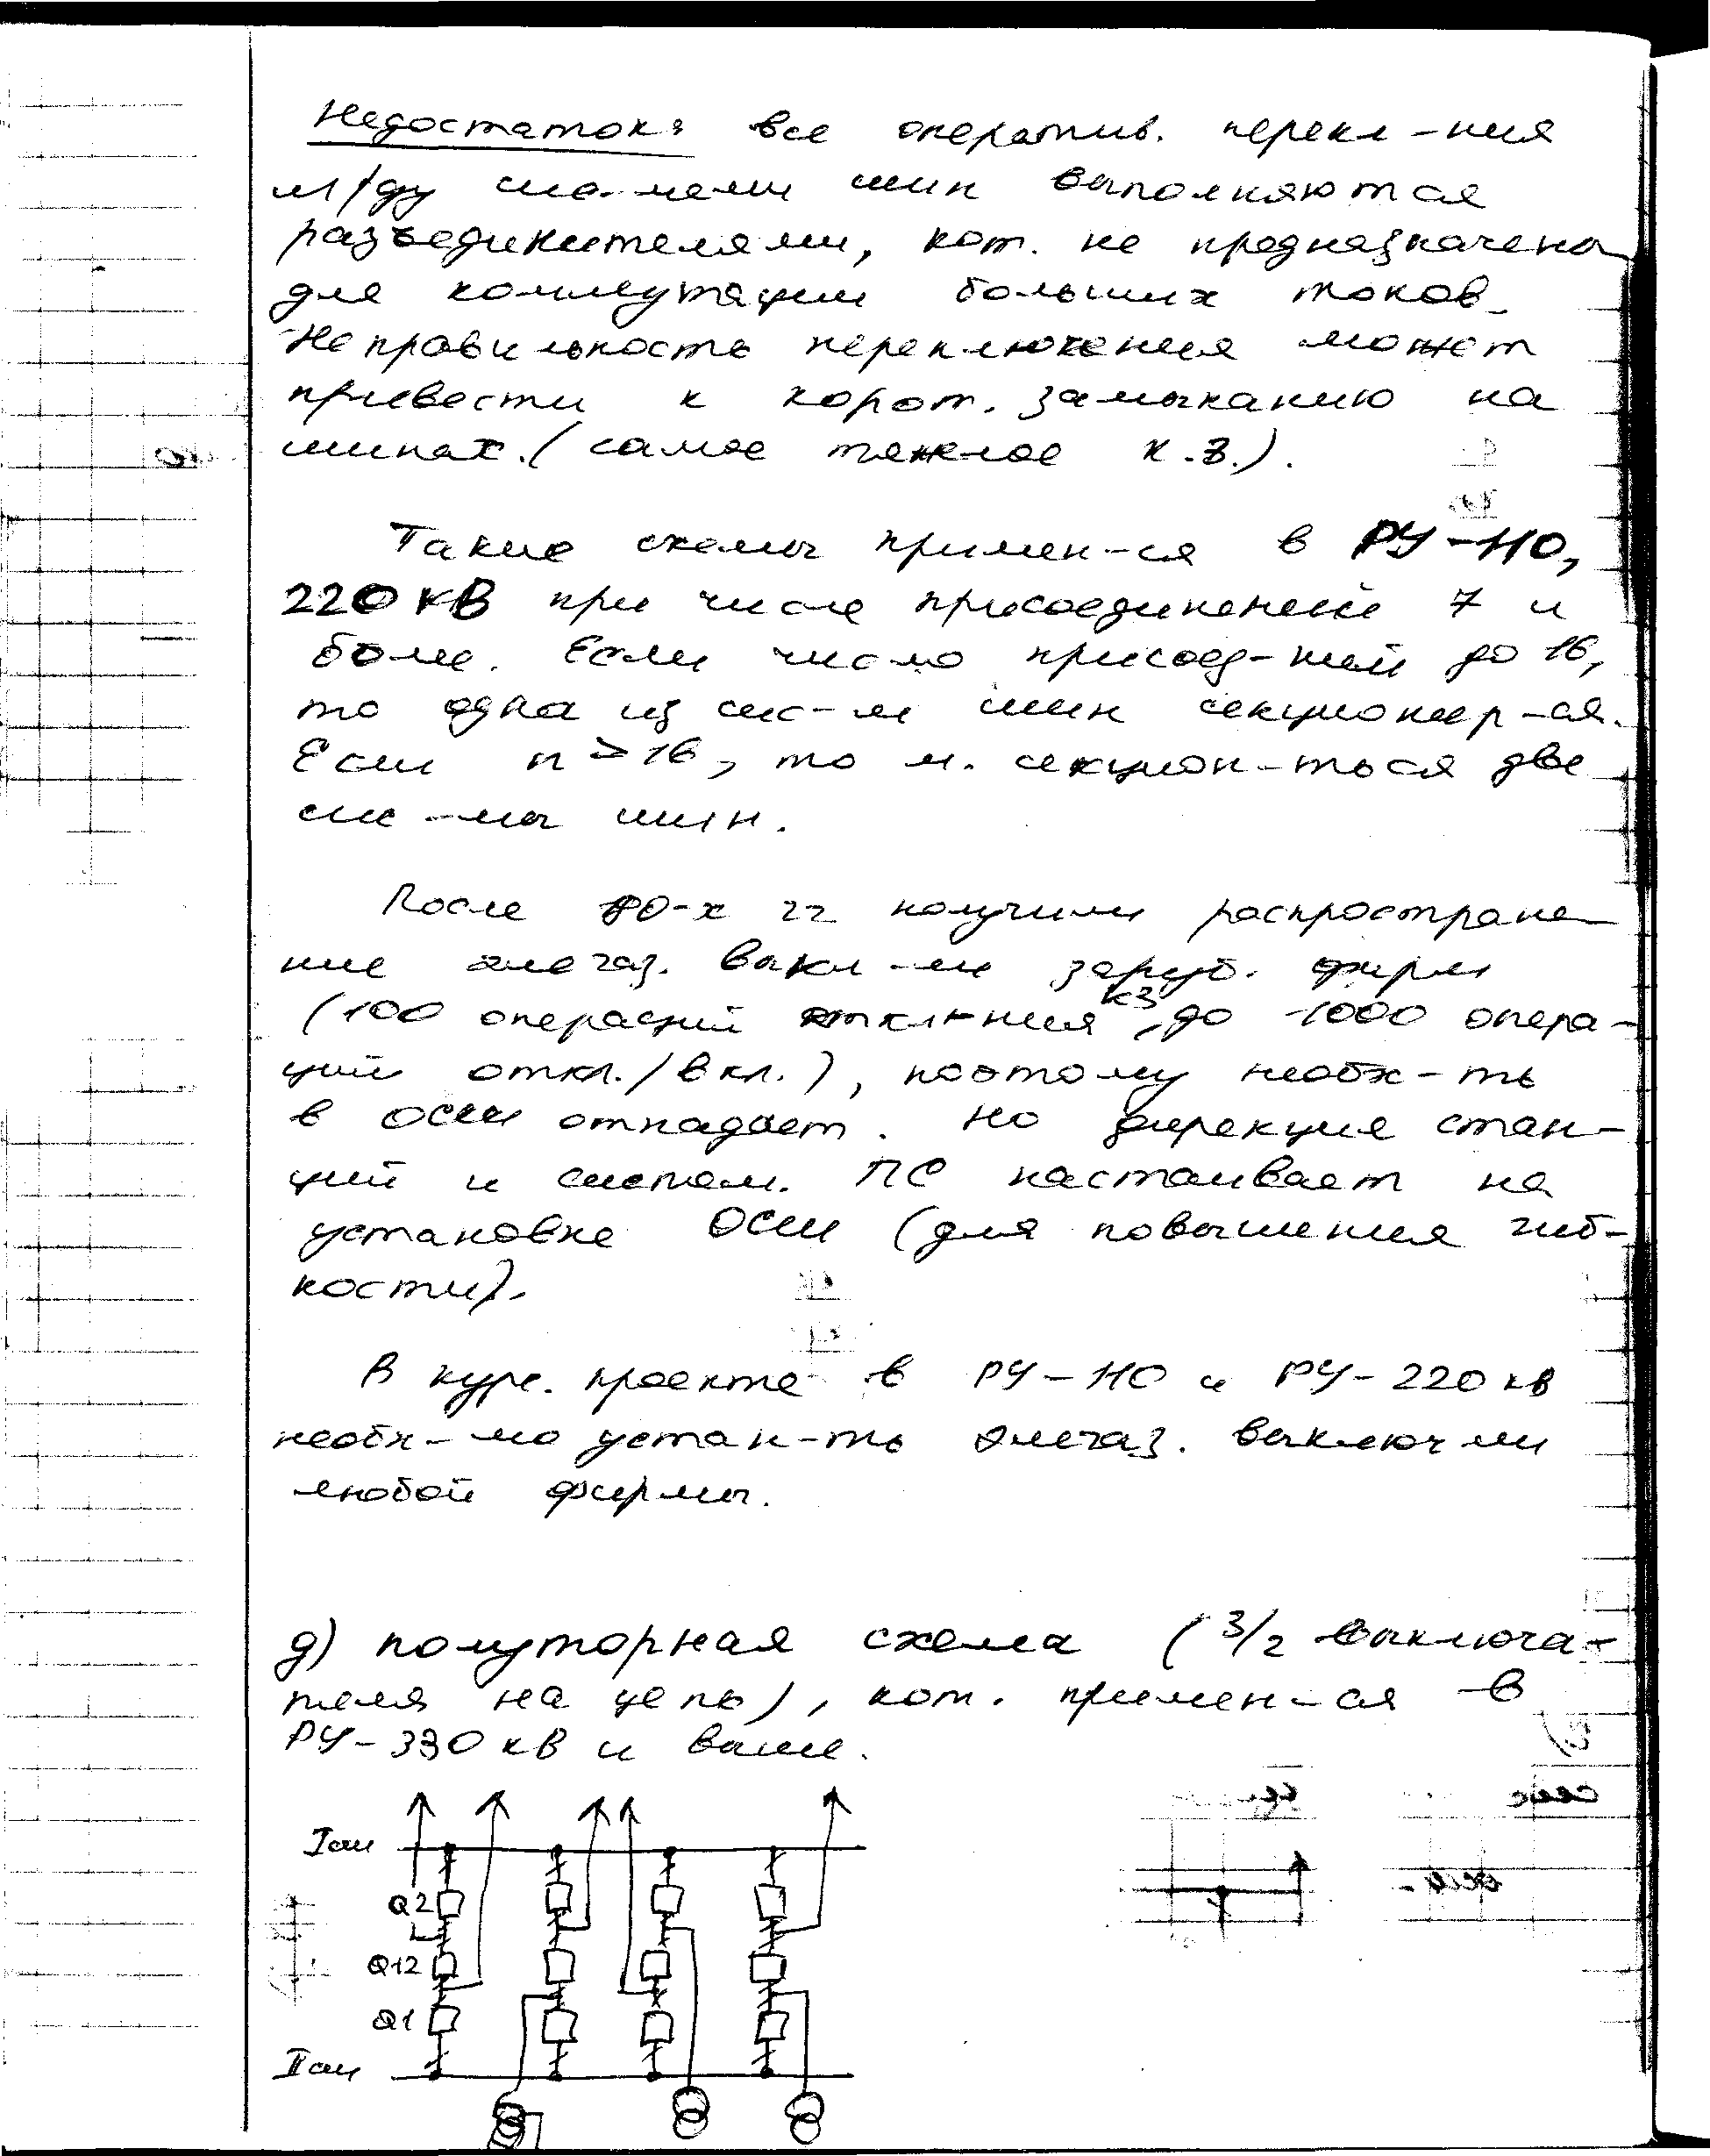 Недостаток: все оператив. перекл-ния
м/ду сис-мами шин выполняются
разъединителями, кот. не предназначены
для коммутации больших токов.
Неправильность переключения может
привести к корот. замыканию на
шинах. (самое тяжелое к.з.).
Такие схемы примен-ся в РУ-110,
220 кВ при числе присоединений 7 и
более. Если число присоед-ний до 16,
то одна из сис-м шин секционир-ся.
Если n ≥ 16, то м. секцион-ться две
сис-мы шин.
После 80-х гг получили распростране
ние элегаз. выкл-ли заруб. фирм
(100 операций откл-ния КЗ, до 1000 опера-
ций откл./вкл.), поэтому необх-ть
в ОСШ отпадает. Но дирекция стан-
ций и систем. ПС настаивает на
установке ОСШ (для повышения гиб-
кости).
В курс. проекте в РУ-110 и РУ-220 кВ
необх-мо устан-ть элегаз. выключ-ли
любой фирмы.
д) полуторная схема (3/2 выключа-
теля на цепь), кот. примен-ся в
РУ-330 кВ и выше.
I сш
Q2
Q12
Q1
II сш